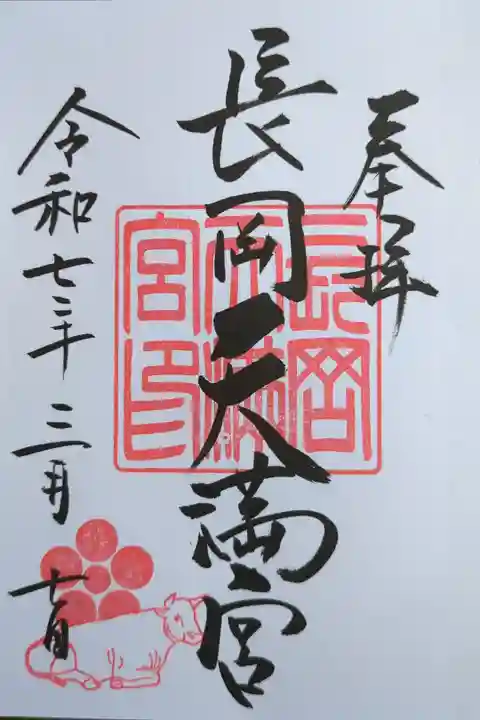 奉拝
長岡天満宮
令和七年三月七日
長岡
天満
宮印